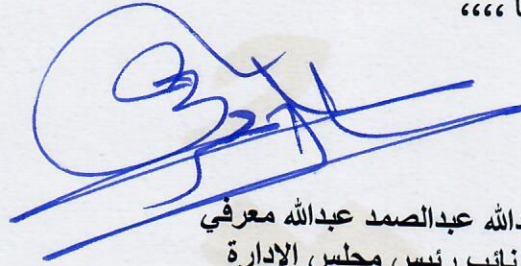 ،،،،
عبدالصمد عبدالله معرفي
نائب رئيس مجلس الإدارة